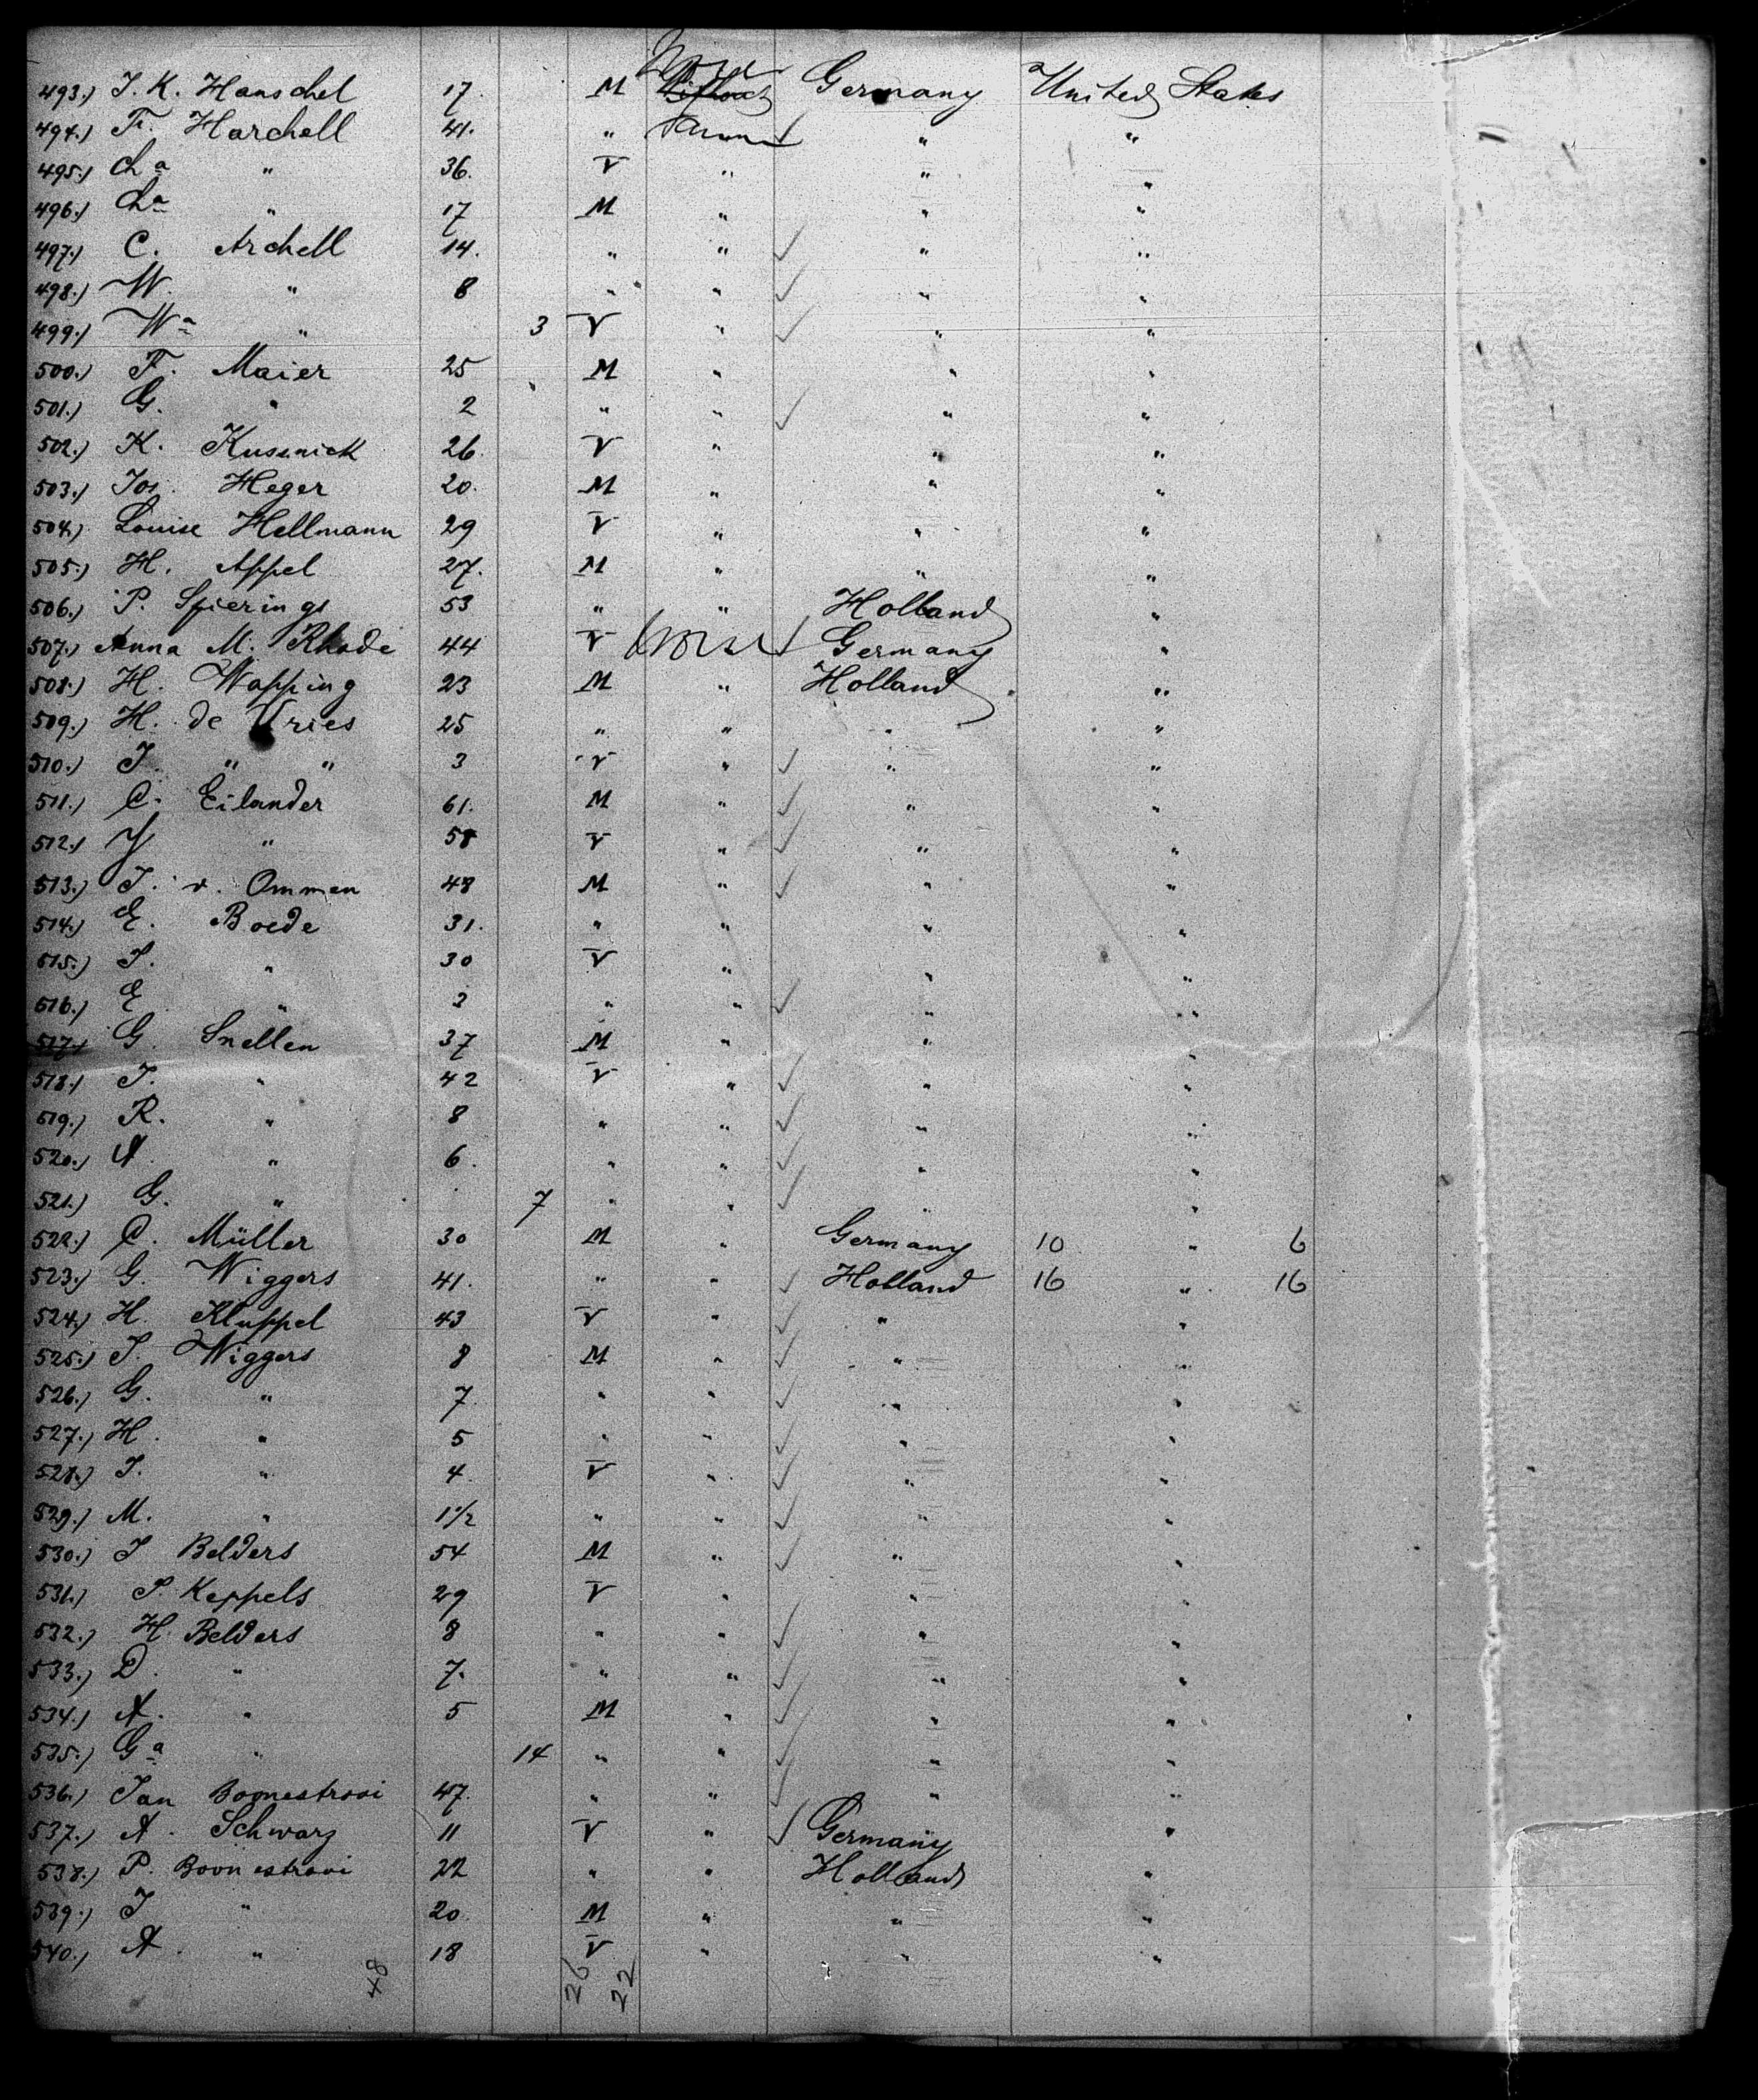 None
493.) J. K. Hanschel 17. M Germany United States
494.) F. Harchell 41. " Farmer " "
495.) Cha " 36. V " " "
496.) Cha " 17 M " " "
497.) C. Archell 14. " " " "
498.) W. " 8 " " " "
499.) Wa " 3 V " " "
500.) F. Maier 25 M " " "
501.) G. " 2 " " " "
502.) K. Kussnick 26. V " " "
503.) Jos. Heger 20. M " " "
504.) Louise Hellmann 29 V " " "
505.) H. Appel 27. M " " "
506.) P. Spierings 53 " " Holland "
507.) Anna M. Rhode 44 V None Germany "
508.) H. Wopping 23 M " Holland "
509.) H. de Vries 25 " " " "
510.) J. " " 3 V " " "
511.) C. Eilander 61. M " " "
512.) J " 58 V " " "
513.) J. v. Ommen 48 M " " "
514.) E. Boede 31. " " " "
515.) J. " 30 V " " "
516.) E. " 3 " " " "
517.) G. Snellen 37 M " " "
518.) J. " 42 V " " "
519.) R. " 8 " " " "
520.) A. " 6. " " " "
521.) G. " 7 " " " "
522.) C. Müller 30 M " Germany 10 " 6
523.) G. Wiggers 41. " " Holland 16 " 16
524.) H. Kluppel 43 V " " "
525.) J. Wiggers 8 M " " "
526.) G. " 7. " " " "
527.) H. " 5 " " " "
528.) J. " 4. V " " "
529.) M. " 1 1/2 " " " "
530.) J Belders 54 M " " "
531.) P. Keppels 29 V " " "
532.) H. Belders 8 " " " "
533.) D. " 7. " " " "
534.) A. " 5 M " " "
535.) Ga " 14 " " " "
536.) Jan Boonestrooi 47. " " " "
537.) A. Schwarz 11 V " Germany "
538.) P. Boonestrooi 22 " " Holland "
539.) J " 20. M " " "
540.) A. " 18 V " " "
48 26 22